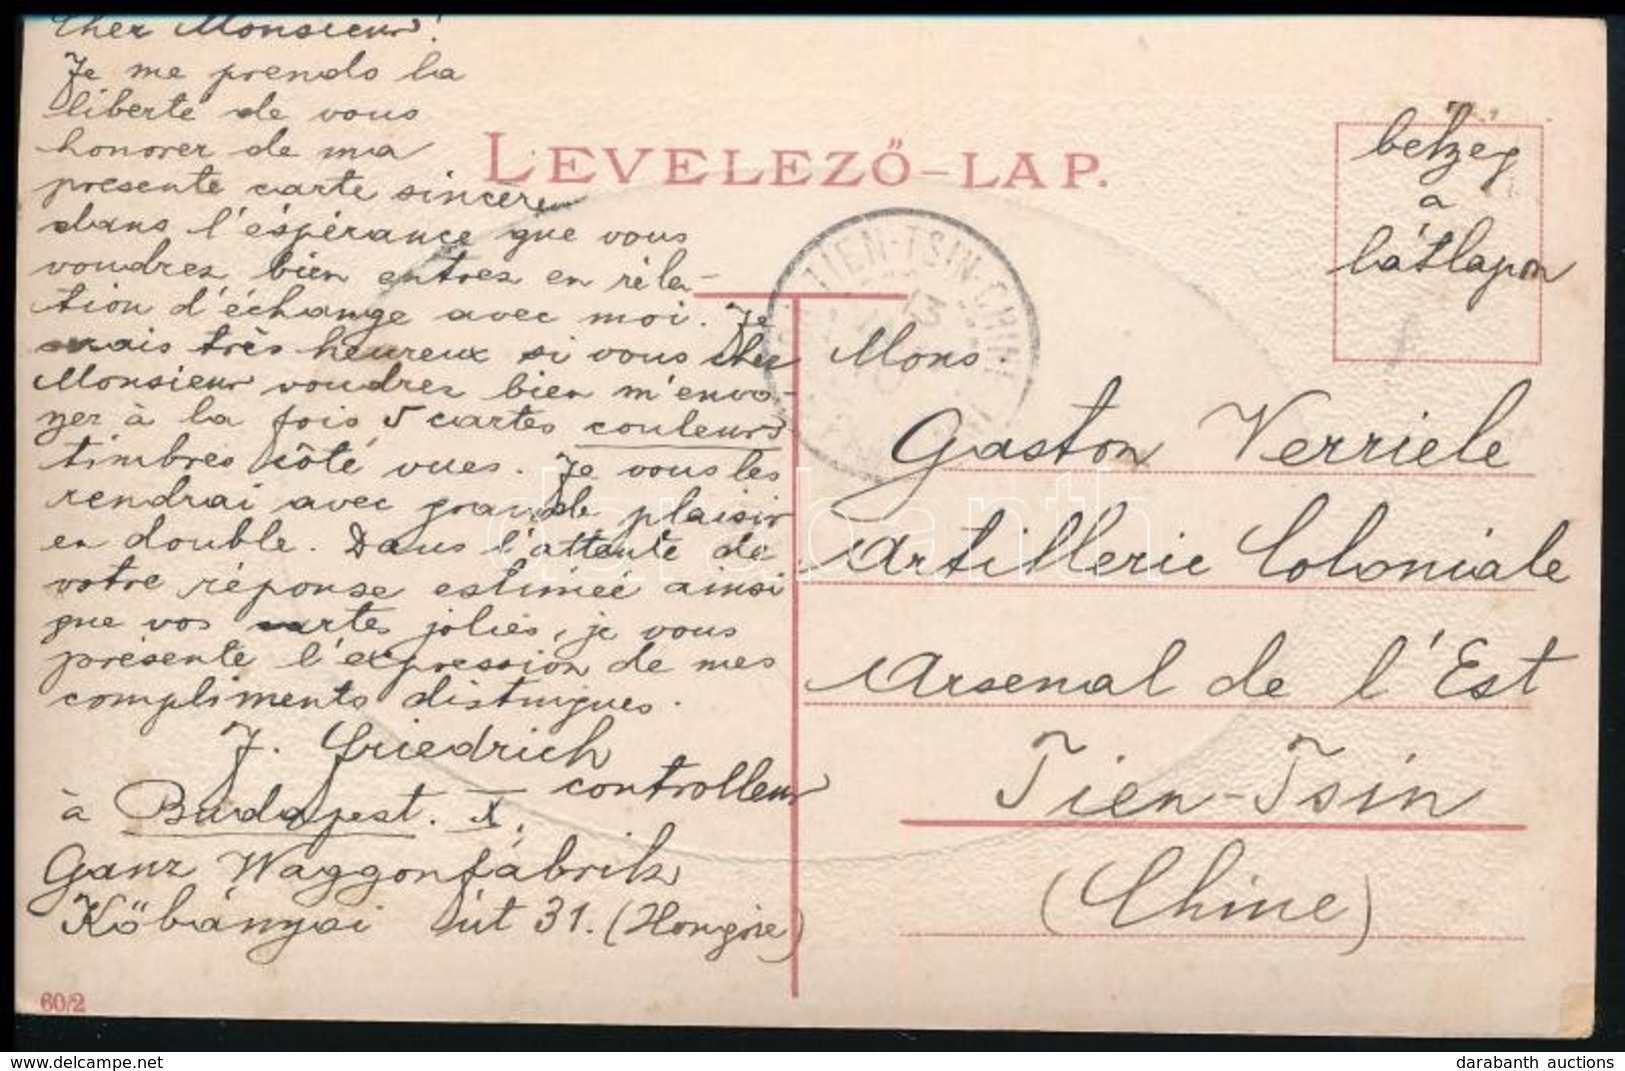 Cher Monsieur!
Je me prends la
liberté de vous
honorer de ma
presente carte sincere
dans l'éspérance que vous
voudrez bien entrez en réla-
tion d'échange avec moi. Je
serais très heureux si vous cher
Monsieur voudrez bien m'envo-
yer à la fois 5 cartes couleurs
timbres côté vues. Je vous les
rendrai avec grande plaisir
en double. Dans l'attente de
votre réponse estimée ainsi
que vos cartes jolies, je vous
présente l'expression de mes
compliments distingues.
J. Friedrich
controlleur
à Budapest. X.
Ganz Waggonfabrik
Kőbányai út 31. (Hongrie)
60/2
LEVELEZŐ-LAP.
TIEN-TSIN-CHINE
13
bélyeg
a
látlapon
Mons.
Gaston Verriele
Artillerie Coloniale
Arsenal de l'Est
Tien-Tsin
(Chine)
darabanth
darabanth auctions
www.delcampe.net